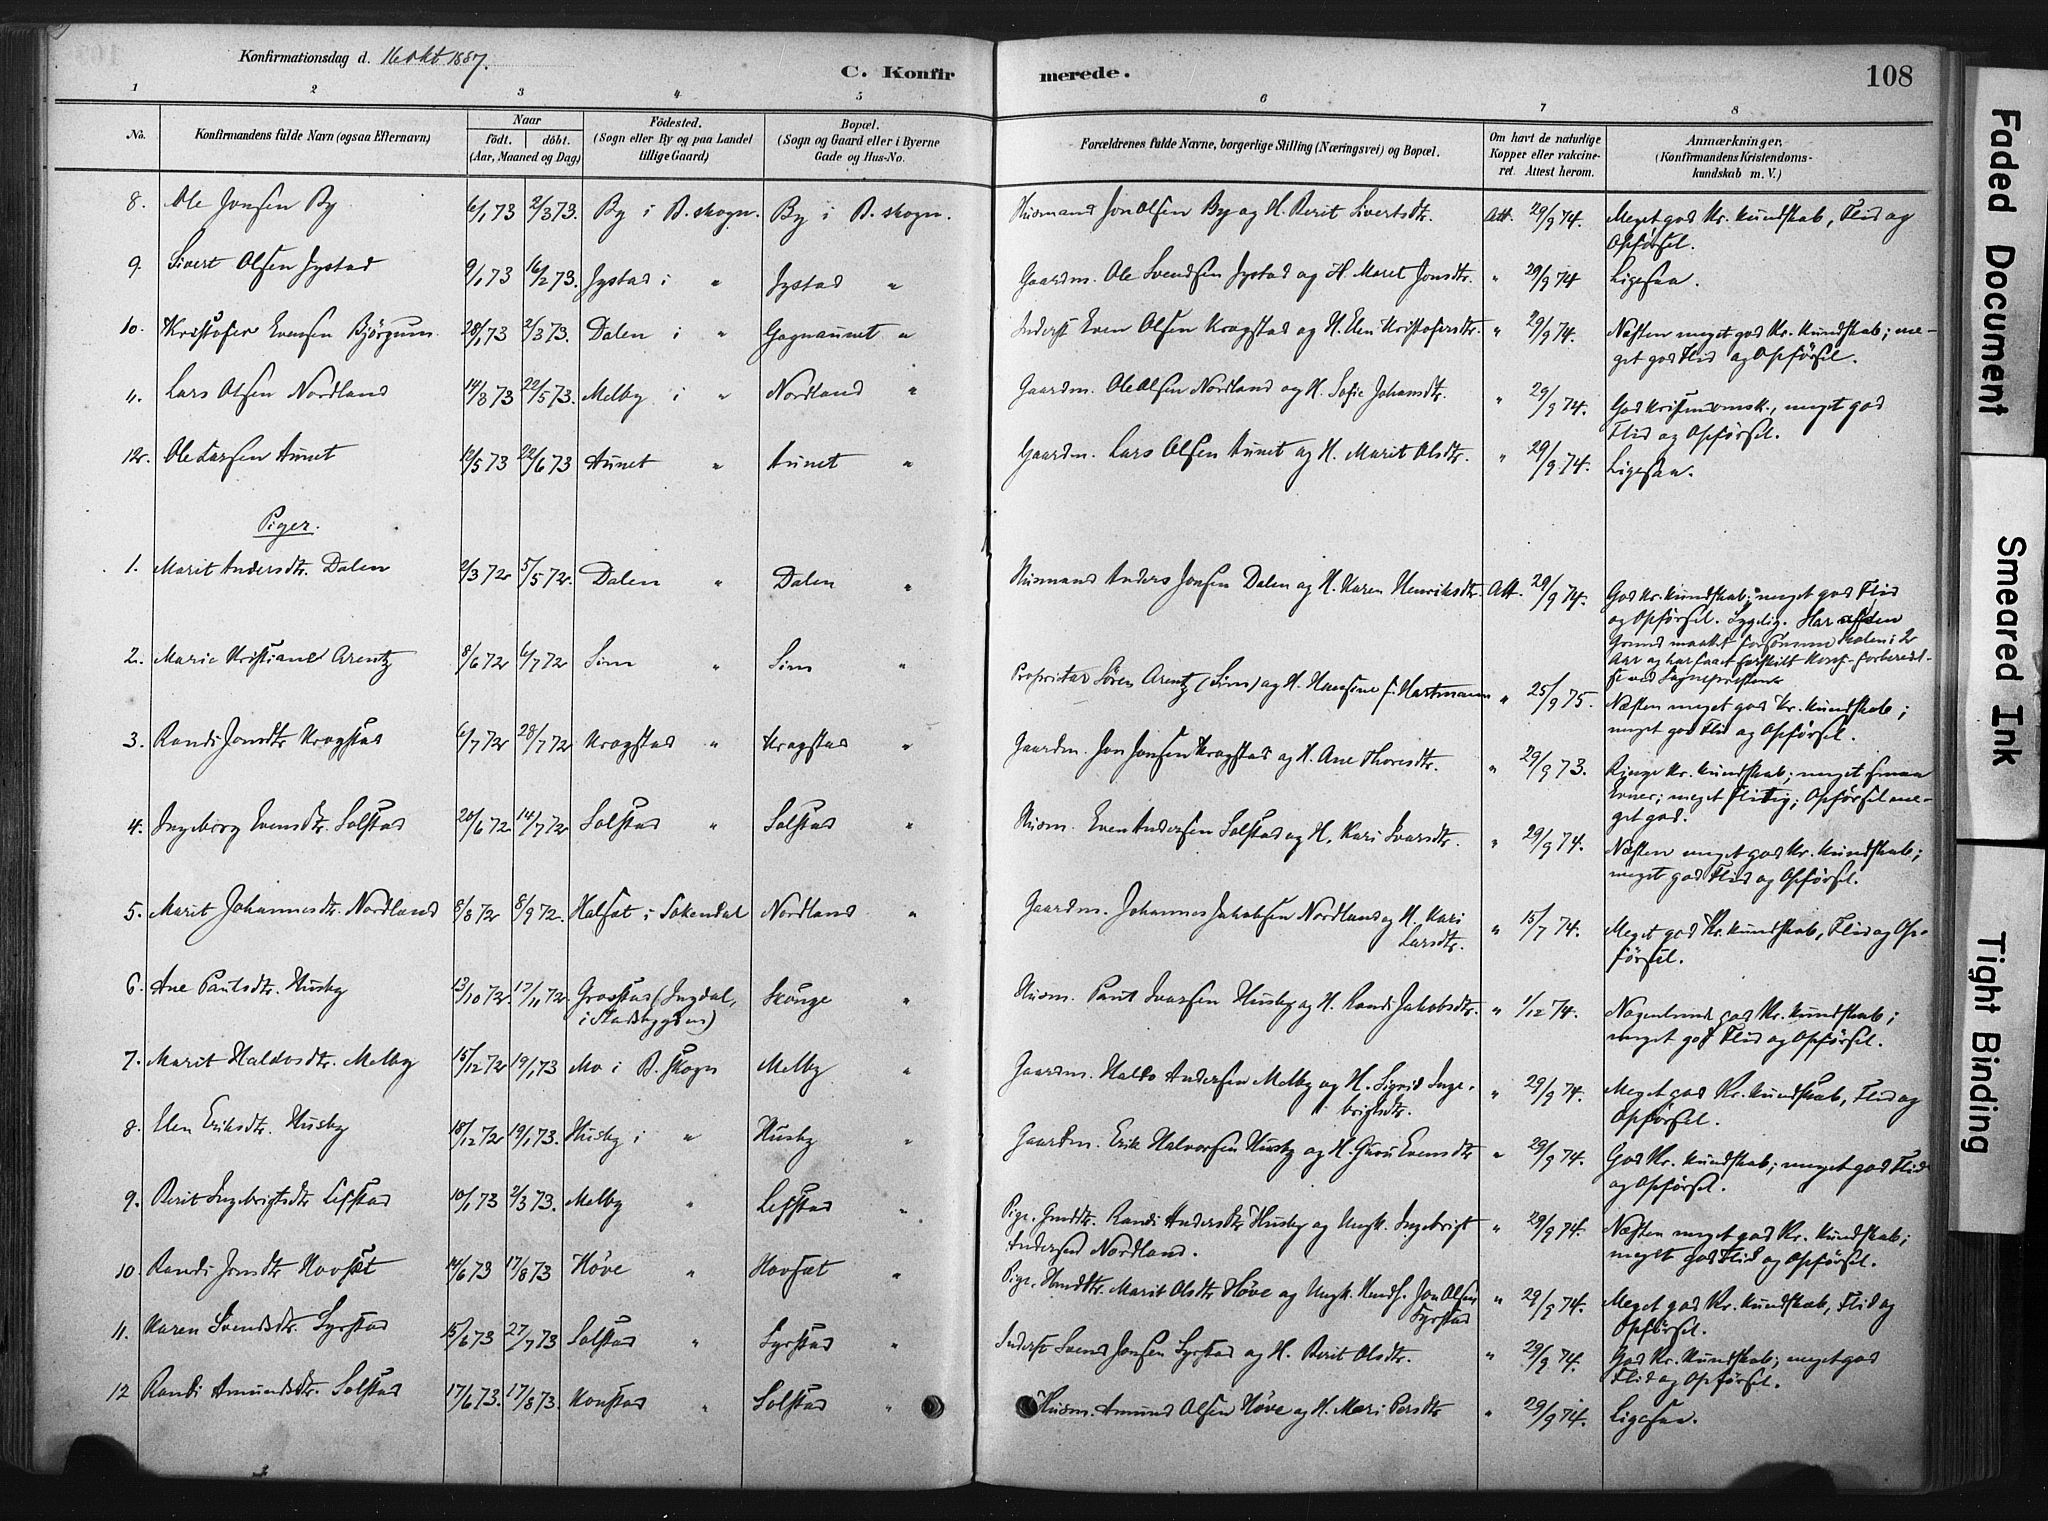 Konfirmationsdag d. 16 okt 1887.
C. Konfirmerede.
108
1 2 3 4 5 6 7 8
No.
Konfirmandens fulde Navn (ogsaa Efternavn)
Naar
födt. döbt.
(Aar, Maaned og Dag)
Födested.
(Sogn eller By og paa Landet
tillige Gaard)
Bopæl.
(Sogn og Gaard eller i Byerne
Gade og Hus-No.
Forældrenes fulde Navne, borgerlige Stilling (Næringsvei) og Bopæl.
Om havt de naturlige
Kopper eller vakcine-
ret. Attest herom.
Anmærkninger,
(Konfirmandens Kristendoms-
kundskab m. V.)
8. Ole Jonsen By 6/1 73 2/3 73. By i B. skogn. By i B. skogn. Husmand Jon Olsen By og H. Berit Sivertsdtr. Att. 29/9 74. Meget god Kr. kundskab, Flid og
Opförsel.
9. Sivert Olsen Jystad 9/1 73 16/2 73. Jystad i " Jystad " Gaardm. Ole Svendsen Jystad og H. Maret Jonsdtr. " 29/9 74 Ligesaa.
10. Kristofer Evensen Björgum 28/1 73 2/3 73. Dalen i " Gagnaunet " Inderst Even Olsen Kragstad og H. Elen Kristofersdtr. " 29/9 74. Næsten meget god Kr. kundskab; me-
get god Flid og Opförsel.
11. Lars Olsen Nordland 14/3 73 22/5 73. Melby i " Nordland " Gaardm. Ole Olsen Nordland og H. Sofie Johansdtr. " 29/9 74. God Kristendomsk., meget god
Flid og Opförsel.
12. Ole Larsen Aunet 12/5 73 22/6 73 Aunet " Aunet " Gaardm. Lars Olsen Aunet og H. Marit Olsdtr. " 29/9 74. Ligesaa.
Piger.
1. Marit Andersdtr. Dalen 2/3 72 5/5 72. Dalen " Dalen " Husmand Anders Jonsen Dalen og H. Karen Henriksdtr. Att. 29/9 74. God Kr. kundskab; meget god Flid
og Opförsel. Sygelig. Har af den
Grund maattet forsömme Skolen i 2
Aar og har faaet særskilt Konf.-forberedel-
se ved Sognepresten.
2. Marie Kristiane Arentz 8/6 72 6/7 72 Sim " Sim " Proprietær Sören Arentz (Sim) og H. Hansine f. Hartmann " 25/9 75. Næsten meget god Kr. kundskab;
meget god Flid og Opförsel.
3. Randi Jonsdtr Kragstad 6/7 72 28/7 72 Kragstad " Kragstad " Gaardm. Jon Jonsen Kragstad og H. Ane Thoresdtr. " 29/9 73. Ringe Kr. kundskab; meget smaa
Evner; meget flitig; Opförsel me-
get god.
4. Ingeborg Evensdtr. Solstad 20/6 72 14/7 72 Solstad " Solstad " Husm. Even Andersen Solstad og H. Kari Ivarsdtr. " 29/9 74. Næsten meget god Kr. kundskab;
meget god Flid og Opförsel.
5. Marit Johannesdtr. Nordland 8/8 72 8/9 72. Halsæt i Soknedal Nordland " Gaardm. Johannes Jakobsen Nordland og H. Kari
Larsdtr. " 15/7 74. Meget god Kr. kundskab, Flid og Op-
försel.
6. Ane Paulsdtr. Husby 13/10 72. 17/11 72. Grøstad (Ingdal,
i Stadsbygden) Skauge " Husm. Paul Ivarsen Husby og H. Randi Jakobsdtr. " 1/12 74. Nogenlunde god Kr. kundskab;
meget god Flid og Opförsel.
7. Marit Haldosdtr. Melby 15/12 72 19/1 73 Mo i B. skogn Melby " Gaardm. Haldo Andersen Melby og H. Sigrid Inge-
brigtsdtr. " 29/9 74. Meget god Kr. kundskab, Flid og
Opförsel.
8. Elen Eriksdtr. Husby 18/12 72 19/1 73. Husby i " Husby " Gaardm. Erik Halvorsen Husby og H. Guru Evensdtr " 29/9 74. God Kr. kundskab; meget god Flid
og Opförsel.
9. Berit Ingebrigtsdtr Lefstad 10/1 73 2/3 73. Melby " Lefstad " Pige. Gmdtr. Randi Andersdtr Husby og Ungk. Ingebrigt
Andersen Nordland. " 29/9 74. Næsten meget god Kr. kundskab;
meget god Flid og Opförsel.
10. Randi Jonsdtr Hovsæt 14/6 73 17/8 73 Höve " Hovsæt " Pige. Hmdtr. Marit Olsdtr Höve og Ungk. Hmds. Jon Olsen
Syrstad " 29/9 74. Meget god Kr. kundskab, Flid og
Opförsel.
11. Karen Svendsdtr. Syrstad 15/6 73 27/7 73 Solstad " Syrstad " Inderst Svend Jonsen Syrstad og H. Berit Olsdtr. " 29/9 74. God Kr. kundskab; meget god
Flid og Opförsel.
12 Randi Amundsdtr. Solstad 17/6 73. 17/8 73. Konstad " Solstad " Husm. Amund Olsen Höve og H. Mari Persdtr " 29/9 74. Ligesaa.
Faded Document
Smeared Ink
Tight Binding